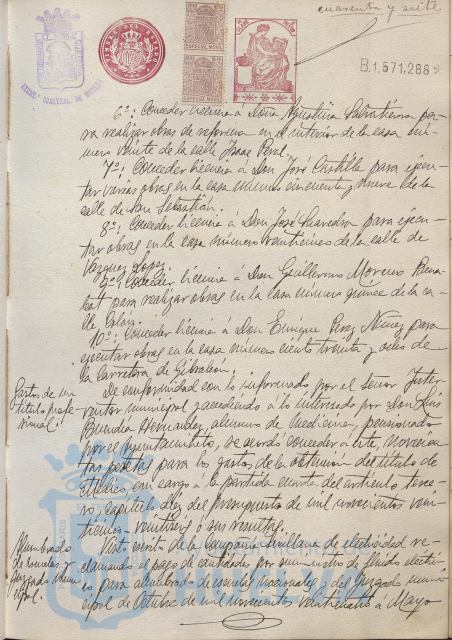 cuarenta y siete
B.1,571,288
ESPECIAL MOVIL
ESPECIAL MOVIL
6º: Conceder licencia á Doña Agustina Salvatierra pa-
ra realizar obras de reforma en el interior de la casa nú-
mero veinte de la calle Isaac Peral.
7º: Conceder licencia á Don José Castilla para ejecu-
tar varias obras en la casa número cincuenta y nueve de la
calle de San Sebastián.
8º: Conceder licencia á Don José Saavedra para ejecu-
tar obras en la casa número veintinueve de la calle de
Vazquez Lopez.
9º: Conceder licencia á Don Guillermo Moreno
para realizar obras en la casa número quince de la ca-
lle Colón.
10º: Conceder licencia á Don Enrique Perez Nuñez para
ejecutar obras en la casa número ciento treinta y ocho de
la Carretera de Gibraleon.
Gastos de un
titulo profe-
sional.
De conformidad con lo informado por el señor Inter-
ventor municipal y accediendo á lo interesado por Don Luis
Buendia Hernandez, alumno de medicina, pensionado
por el Ayuntamiento, se acordó conceder á este, novecien-
tas pesetas para los gastos de la obtención del titulo de
Médico, con cargo á la partida cuarta del articulo terce-
ro, capitulo diez del Presupuesto de mil novecientos vein-
ticinco-veintiseis ó sus resultas.
Alumbrado
de escuelas y
Juzgado muni-
cipal.
Visto escrito de la Compañia Sevillana de electricidad re-
clamando el pago de cantidades por suministro de fluido electri-
co para alumbrado de escuelas nacionales y del Juzgado muni-
cipal de Octubre de mil novecientos veinticuatro á Mayo